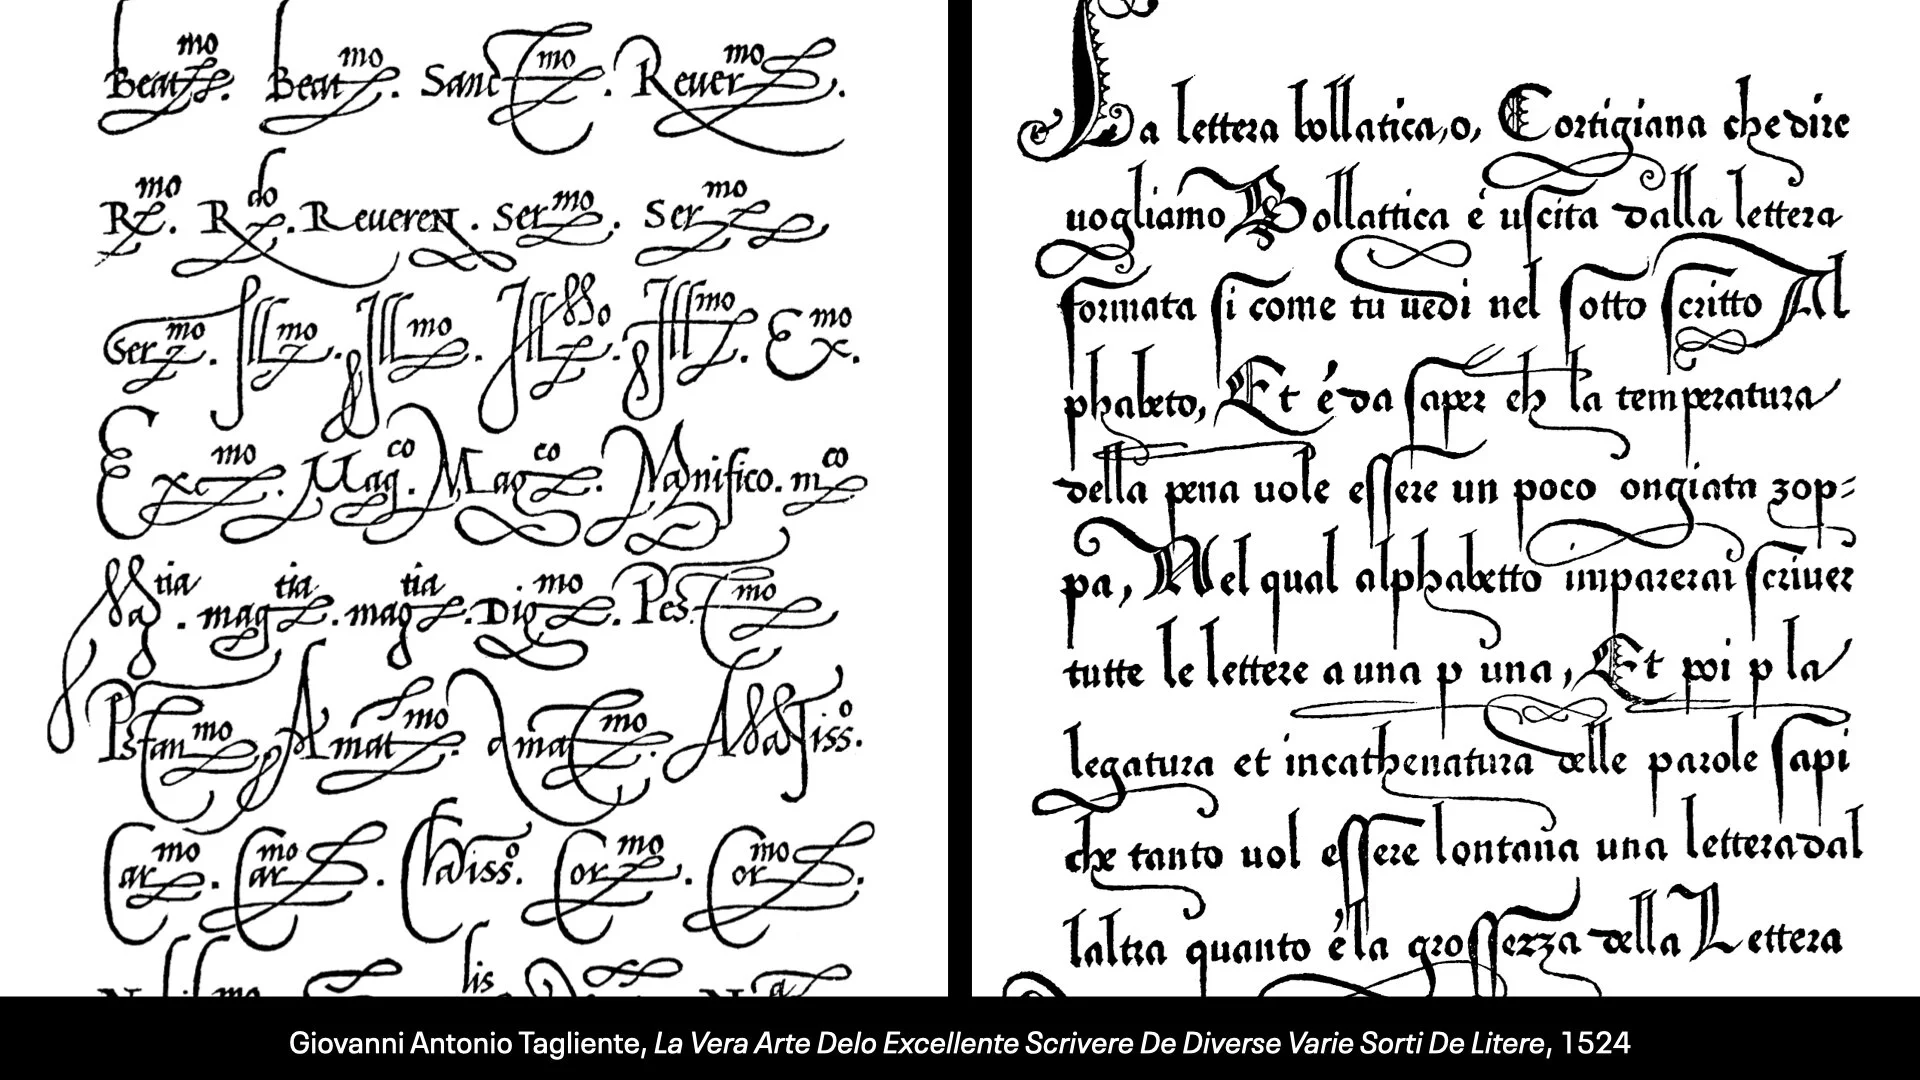 Beat. Beat mo. Sanc mo. Reuer mo.
R mo. R do. Reueren. Ser mo. Ser mo.
Ser mo. Ill mo. Ill mo. Ill. Ill mo. Ex mo.
Exc mo. Mag co. Mag co. Manifico. m co
tia. mag tia. mag tia. Dig mo. Pest mo
Pstan mo. Amat mo. amat mo. Abbatiss o.
Car mo. Car mo. Cor mo. Cor mo.
lis
La lettera bollatica, o, Cortigiana che dire
uogliamo Bollattica é uscita dalla lettera
formata si come tu uedi nel sotto scritto Al
phabeto, Et é da saper ch la temperatura
della pena uole essere un poco ongiata zop=
pa, Nel qual alphabetto imparerai scriuer
tutte le lettere a una p una, Et poi p la
legatura et incathenatura delle parole sapi
che tanto uol essere lontana una lettera dal
laltra quanto é la grossezza della Lettera
Giovanni Antonio Tagliente, La Vera Arte Delo Excellente Scrivere De Diverse Varie Sorti De Litere, 1524